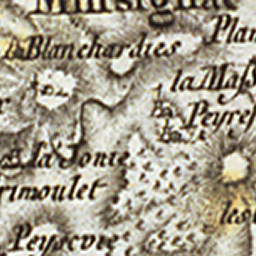 Blanchardies
Plan
la Mass
Peyres
la Fonte
rimoulet
les
Peyscure